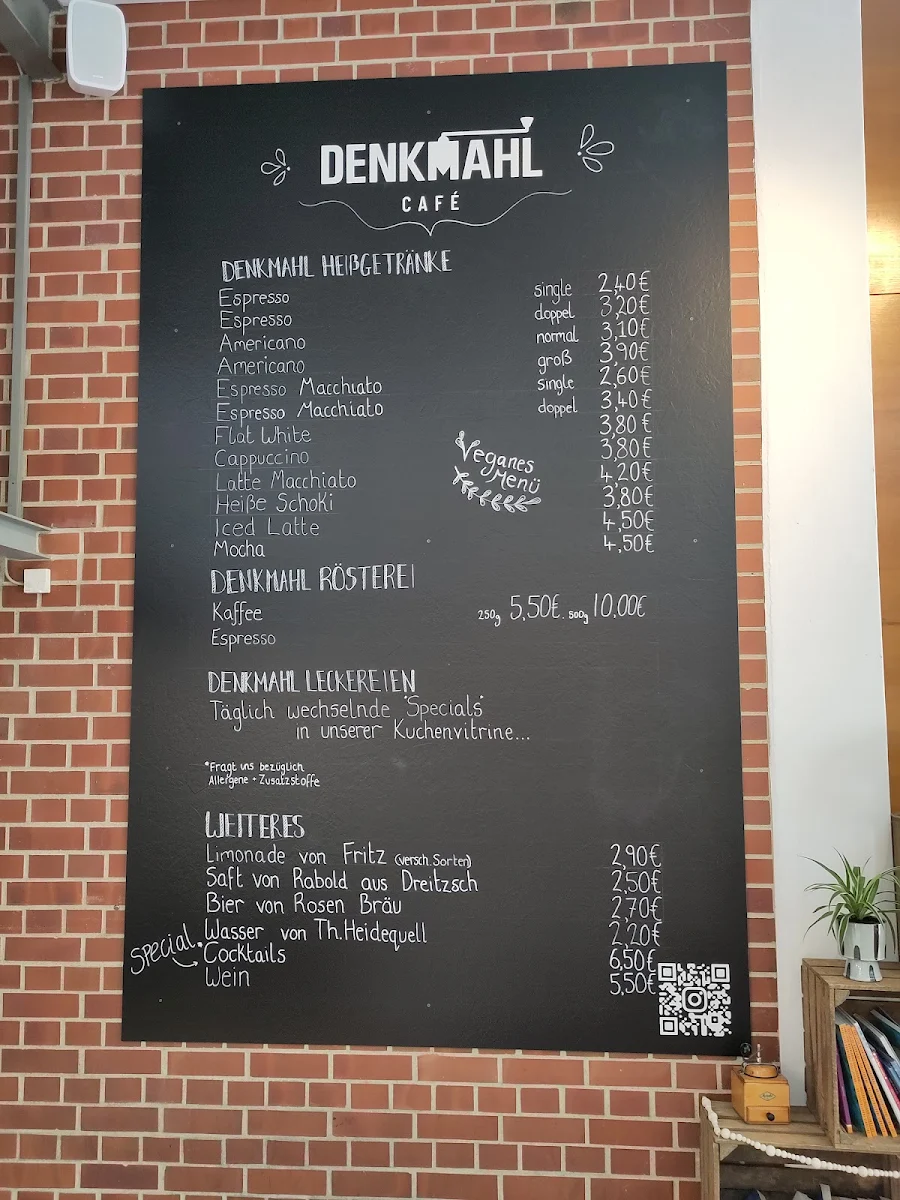 DENKMAHL
CAFÉ
DENKMAHL HEIßGETRÄNKE
Espresso single 2,40€
Espresso doppel 3,20€
Americano normal 3,10€
Americano groß 3,90€
Espresso Macchiato single 2,60€
Espresso Macchiato doppel 3,40€
Flat White 3,80€
Cappuccino 3,80€
Latte Macchiato 4,20€
Heiße Schoki 3,80€
Iced Latte 4,50€
Mocha 4,50€
Veganes
Menü
DENKMAHL RÖSTEREI
Kaffee 250g 5,50€. 500g 10.00€
Espresso
DENKMAHL LECKEREIEN
Täglich wechselnde "Specials"
in unserer Kuchenvitrine...
*Fragt uns bezüglich
Allergene + Zusatzstoffe
WEITERES
Limonade von Fritz (versch. Sorten) 2,90€
Saft von Rabold aus Dreitzsch 2,50€
Bier von Rosen Bräu 2,70€
Wasser von Th. Heidequell 2,20€
Special Cocktails 6,50€
Wein 5,50€